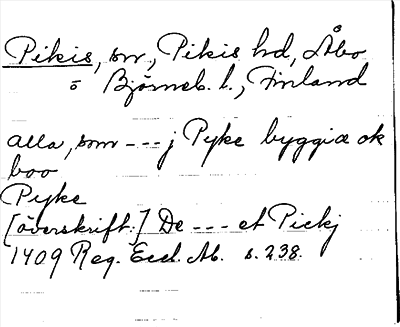 Pikis, sn, Pikis hd, Åbo
o Björneb. l., Finland
alla, som --- j Pyke byggia ok
boo
Pyke
[överskrift:] De --- et Pickj
1409 Reg. Eccl. Ab. s. 238.